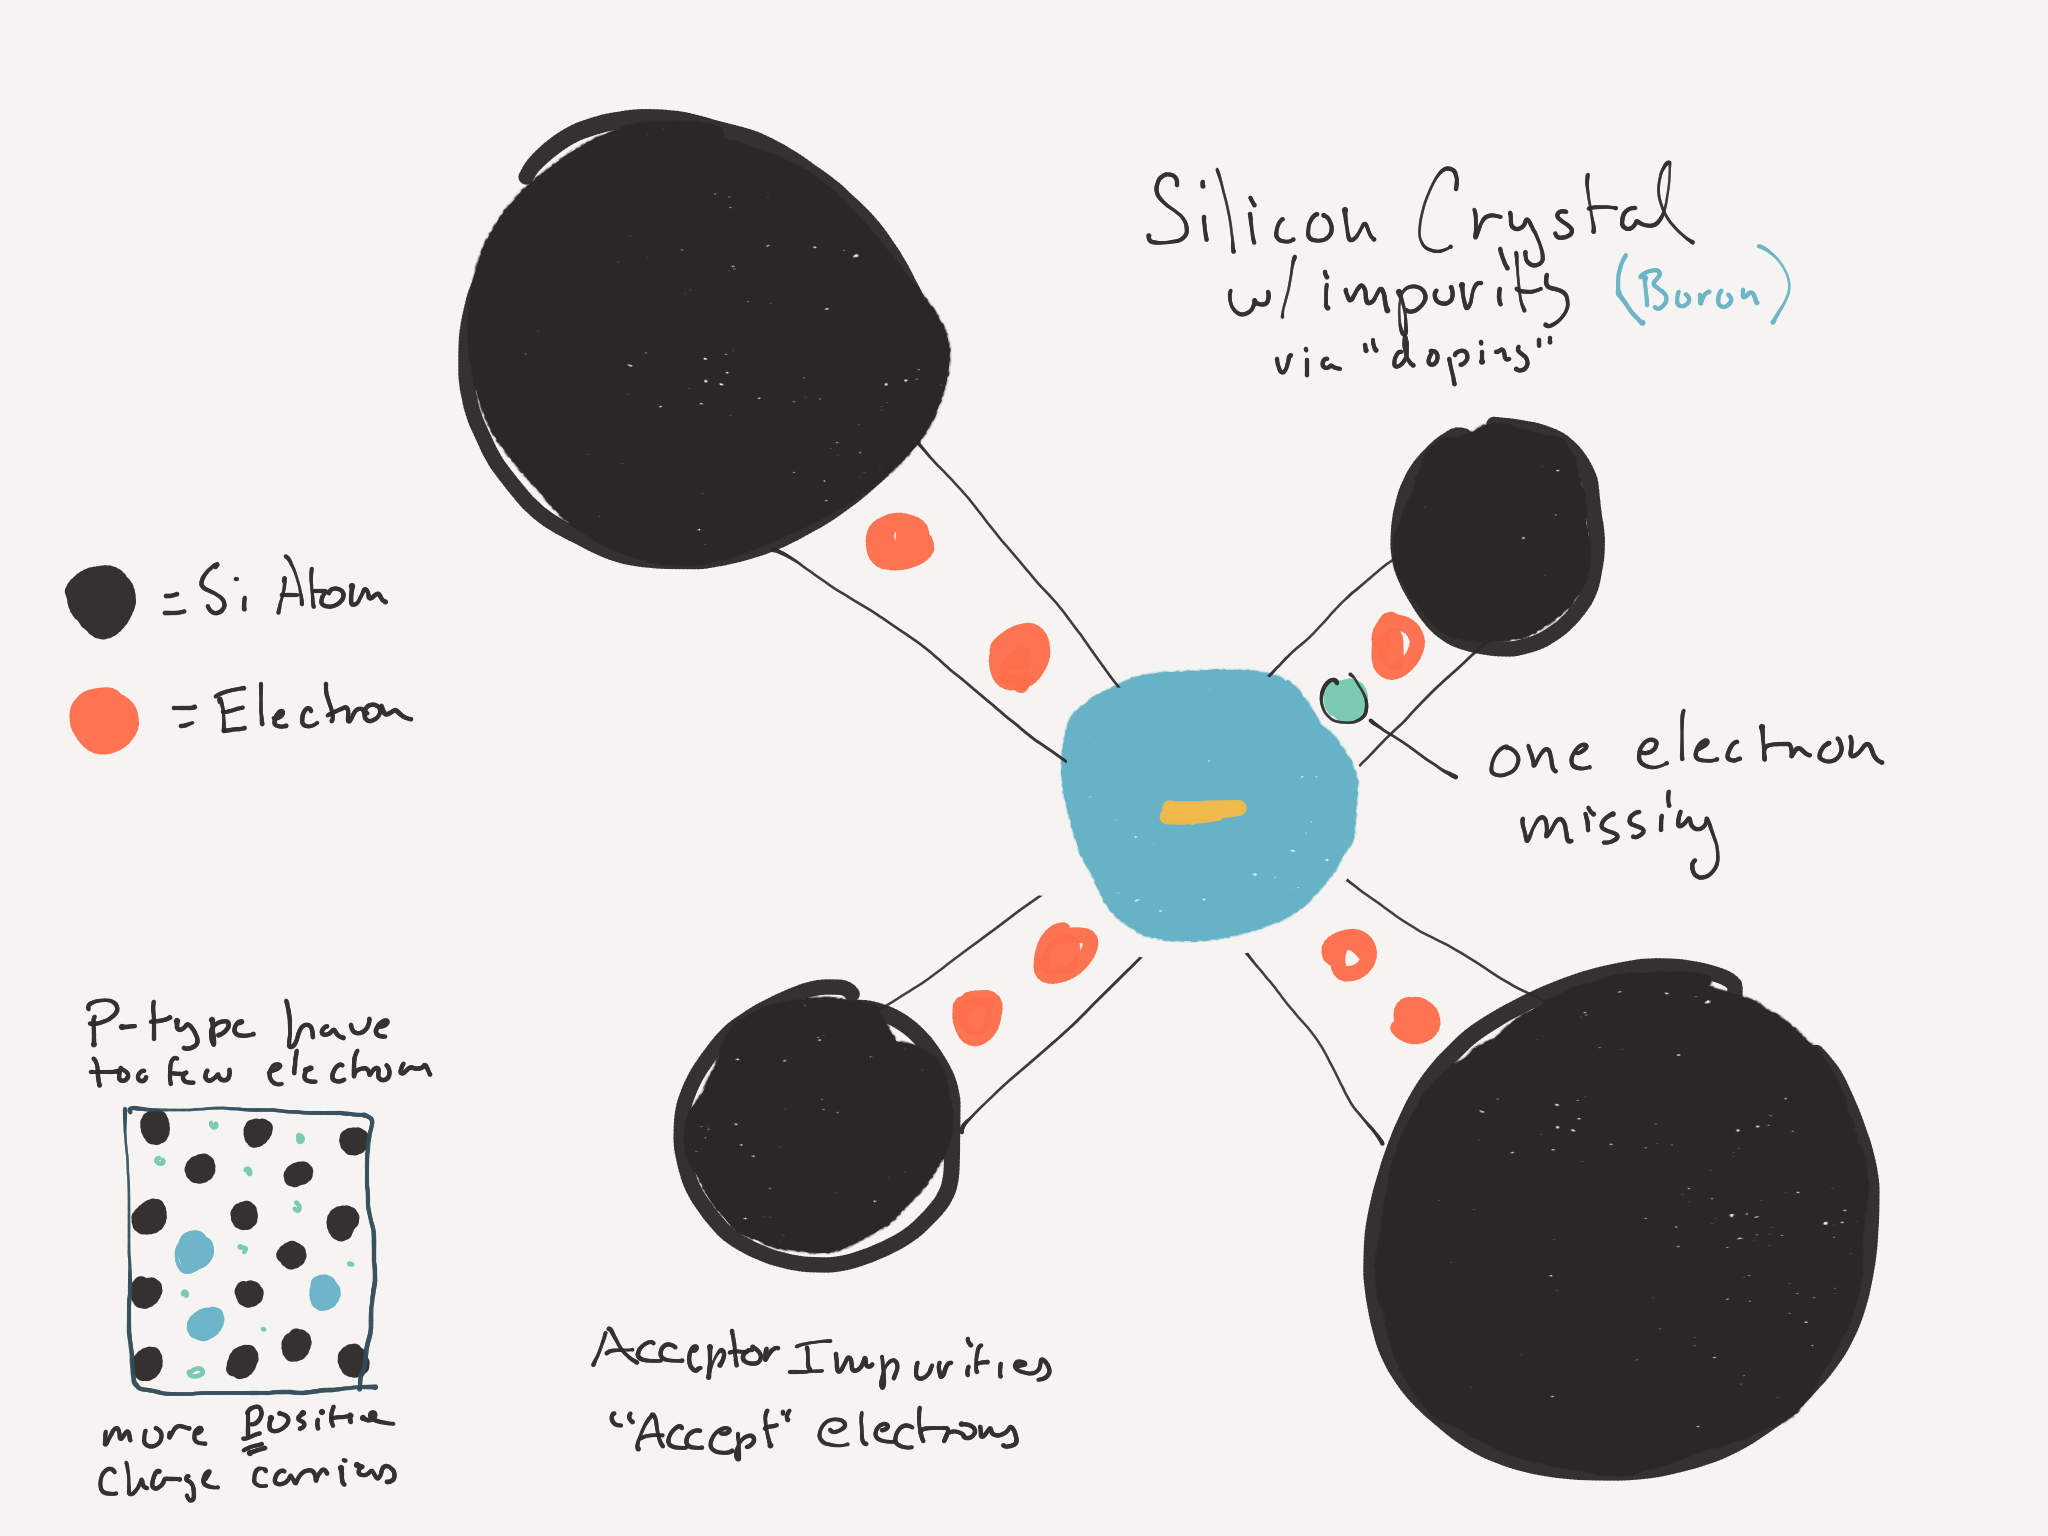 Silicon Crystal
w/ impurity (Boron)
via "doping"
= Si Atom
= Electron
one electron
missing
P-type have
too few electrons
more Positive
charge carriers
Acceptor Impurities
"Accept" electrons